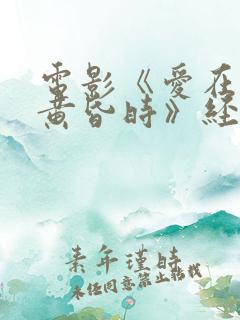 電影《愛在
黃昏時》經
素年瑾時
未经同意禁止转载